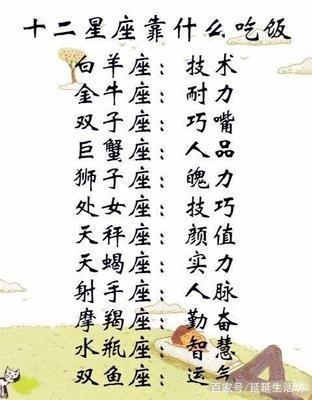 十二星座靠什么吃饭
白羊座：技术
金牛座：耐力
双子座：巧嘴
巨蟹座：人品
狮子座：魄力
处女座：技巧
天秤座：颜值
天蝎座：实力
射手座：人脉
摩羯座：勤奋
水瓶座：智慧
双鱼座：运气
百家号/延延生活坊